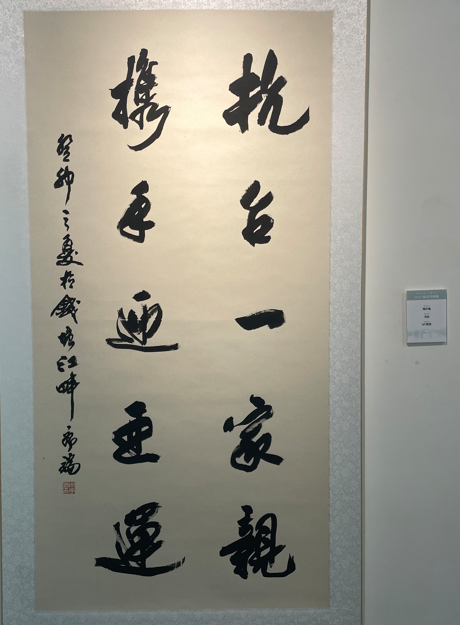 杭台一家親
携手迎亚運
癸卯之夏於錢塘江畔